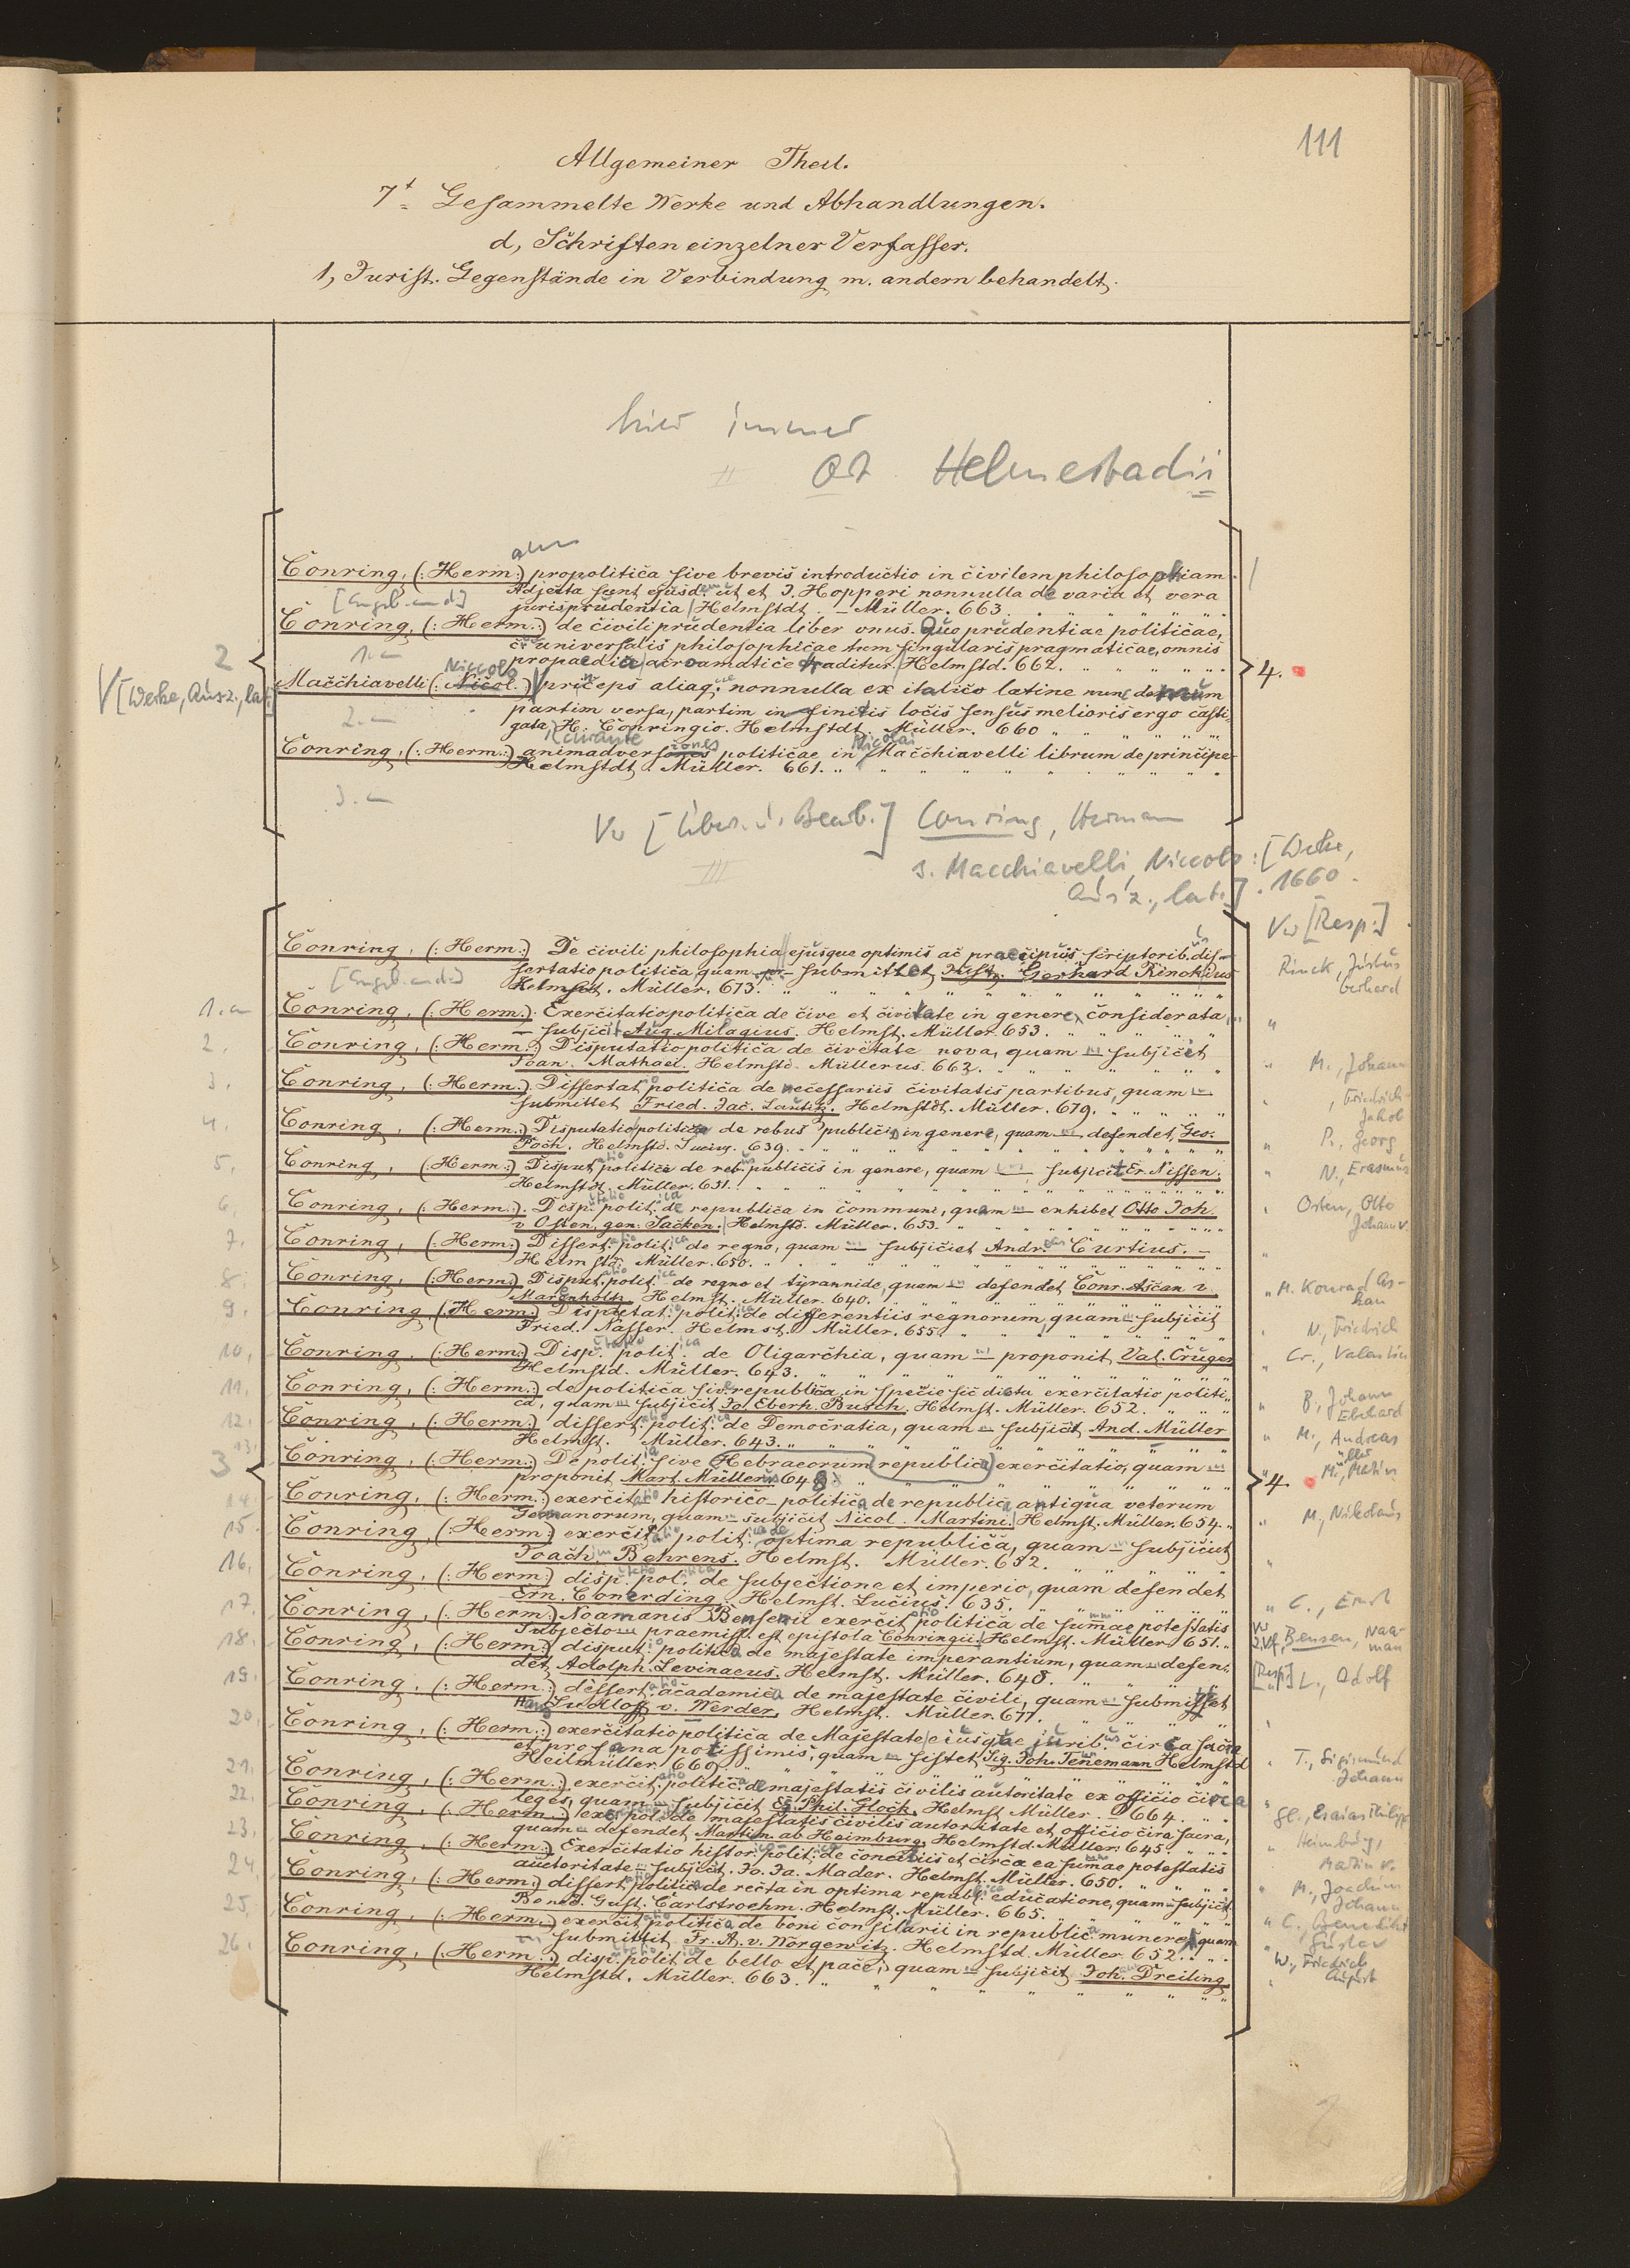 111
Allgemeiner Theil.
7t Gesammelte Werke und Abhandlungen.
d, Schriften einzelner Verfasser.
1, Jurist. Gegenstände in Verbindung m. andern behandelt.
hier immer
Helmestadii
Conring, (: Herm:) propolitica sive brevis introductio in civilem philosophiam.
[Angeb. and.] Adjecta sunt ejusd. ut et J. Hopperi nonnulla de varia et vera
jurisprudentia / Helmstdt. – Müller. 663.
Conring, (: Herm.:) de civili prudentia liber unus. Quo prudentiae politicae,
cu universalis philosophicae tum singularis pragmaticae, omnis
2 1.
propaedia acroamatice traditur. / Helmstd. 662.
4.
V [Werke, Ausz., lat.]
Macchiavelli (: Nicol.:) Niccolo princeps aliaq; nonnulla ex italico latine nunc demum
2.
partim versa, partim infinitis locis sensus melioris ergo casti,
gata, H. Conringio. Helmstdt. Müller. 660
Conring, (: Herm.:) animadversiones politicae in Nicolai Macchiavelli librum de principe
Helmstdt. Müller. 661.
3.
Vw [Übers. u. Bearb.] Conring, Herman
s. Macchiavelli, Niccolo: [Werke,
Ausz., lat.]. 1660.
Vw [Resp.]
Conring, (: Herm:) De civili philosophia ejusque optimis ac praecipuis scriptorib. dis-
[Angeb. and.] sertatio politica, quam submittet Just. Gerhard Rinckius Rinck, Justus
Helmst. Müller. 673. Gerhard
1. Conring, (: Herm.:) Exercitatio politica de cive et civitate in genere considerata,
– subjicit Aug. Milagius. Helmst. Müller. 653.
2. Conring, (: Herm.:) Disputatio politica de civitate nova, quam – subjiciet
Joan. Mathaei. Helmstd. Müllerus. 662. M., Johann
3. Conring, (: Herm.:) Dissertatio politica de necessariis civitatis partibus, quam –
submittet Fried. Jac. Lautitz. Helmstdt. Müller. 679. , Friedrich Jakob
4. Conring, (: Herm.:) Disputatio politica de rebus publicis in genere, quam – defendet Geo.
Poch. Helmstd. Lucius. 639. P., Georg
5. Conring, (: Herm:) Disputatio politica de reb. publicis in genere, quam – subjicit Er. Nissen.
Helmstd. Müller. 651. N., Erasmus
6. Conring, (: Herm.:) Disp. polit. de republica in communi, quam – exhibet Otto Joh.
v Osten, gen. Sacken. / Helmstd. Müller. 653. Osten, Otto Johann v.
7. Conring, (: Herm:) Dissert. polit. de regno, quam – subjiciet Andr. Curtius. –
Helmstd. Müller. 650.
8. Conring, (: Herm.:) Disput. polit. de regno et tyrannide, quam – defendet Conr. Ascan v.
Marenholtz. Helmst. Müller. 640. M. Konrad As-kan
9. Conring, (: Herm:) Disputat. polit. de differentiis regnorum, quam – subjicit
Fried. Nasser. Helmst. Müller. 655. N., Friedrich
10. Conring, (: Herm:) Disp. polit. de Oligarchia, quam – proponit Val. Crüger
Helmstd. Müller. 643. Cr., Valentin
11. Conring, (: Herm.:) de politica sive republica in specie sic dicta exercitatio politi,
ca, quam – subjicit Jo. Eberh. Busch. Helmst. Müller. 652. B., Johann Eberhard
12. Conring, (: Herm:) dissert. polit. de Democratia, quam – subjicit And. Müller
Helmst. Müller. 643. M., Andreas
3 13. Conring, (: Herm.:) De polit. sive Hebraeorum republica exercitatio, quam –
proponit Mart. Müller. 648 4. M., Martin
14. Conring, (: Herm:) exercitatio historico-politica de republica antiqua veterum
Germanorum, quam – subjicit Nicol. Martini. / Helmst. Müller. 654. M., Nikolaus
15. Conring, (: Herm:) exercit. polit. de optima republica, quam – subjiciet
Joach. Behrens. Helmst. Müller. 652.
16. Conring, (: Herm:) disp. pol. de subjectione et imperio, quam defendet
Ern. Conerding. Helmst. Lucius. 635. C., Ernst
17. Conring, (: Herm:) Noamanis Bensenii exercitatio politica de summae potestatis
subjecto praemiss. est epistola Conringii. Helmst. Müller. 651. Bensen, Naa-man
18. Conring, (: Herm:) disput. politica de majestate imperantium, quam – defen,
det Adolph. Levinaeus. Helmst. Müller. 648. [Resp.] L., Adolf
19. Conring, (: Herm:) dissert. academica de majestate civili, quam – submisset
Hans Ludloff v. Werder. Helmst. Müller. 677.
20. Conring, (: Herm.:) exercitatio politica de Majestate ejusque jurib. circa sacra
et profana potissimis, quam – sistet Sig. Joh. Tenemann Helmstd
Heilmüller. 669. T., Sigismund Johann
21. Conring, (: Herm.:) exercit. politic. de majestatis civilis autoritate ex officio circa
leges, quam – subjicit Es. Phil. Glock. Helmst. Müller. 664. Gl., Esaias Philipp
22. Conring, (: Herm.:) exerc. pol. de majestatis civilis autoritate et officio circa sacra,
quam – defendet Martin. ab Heimburg. Helmstd. Müller. 645. Heimburg, Martin v.
23. Conring, (: Herm.:) Exercitatio histor. polit. de conciliis et circa ea summae potestatis
autoritate – subjicit. Jo. Ja. Mader. Helmst. Müller. 650. M., Joachim Johann
24. Conring, (: Herm:) dissert. politica de recta in optima republ. educatione, quam – subjicit
Bened. Gust. Carlstroehm. Helmst. Müller. 665. C., Benedikt Gustav
25. Conring, (: Herm:) exercit. politica de boni consiliarii in republica munere, quam
– submittit Fr. A. v. Norgewitz. Helmstd. Müller. 652. W., Friedrich August
26. Conring, (: Herm.:) disp. polit. de bello et pace, quam – subjicit Joh. Dreiling
Helmstd. Müller. 663.